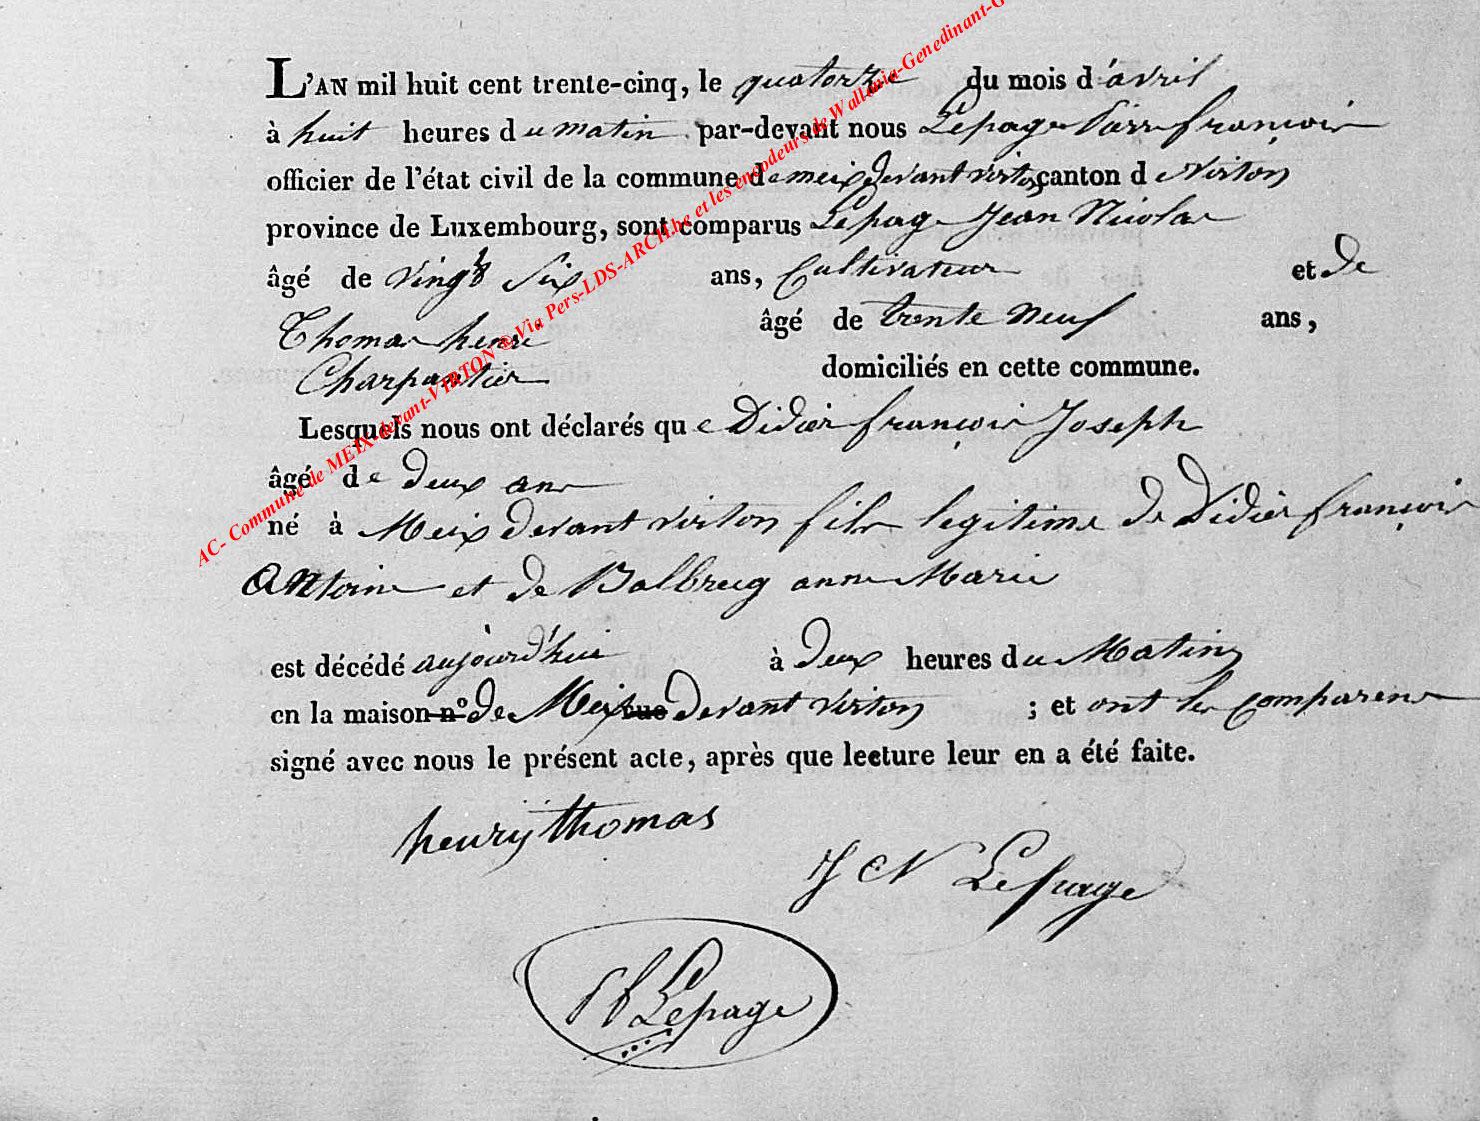 L'AN mil huit cent trente-cinq, le quatorze du mois d'avril
à huit heures du matin par-devant nous Lepage françois
officier de l'état civil de la commune de meix devant virton canton de virton
province de Luxembourg, sont comparus Lepage Jean Nicolas
âgé de vingt six ans, Cultivateur et de
Thomas henri âgé de trente neuf ans,
Charpentier domiciliés en cette commune.
Lesquels nous ont déclarés que Didier françois Joseph
âgé de deux ans
né à Meix devant virton fils legitime de Didier françois
Antoine et de anne Marie
est décédé aujourd'hui à deux heures du Matin
en la maison n° de Meix rue devant virton ; et ont les comparens
signé avec nous le présent acte, après que lecture leur en a été faite.
henry thomas
J N Lepage
Lepage
AC- Commune de MEIX-devant-VIRTON ® Via Pers-LDS-ARCH.be et les encodeurs de Wallonia-Genedinant-G